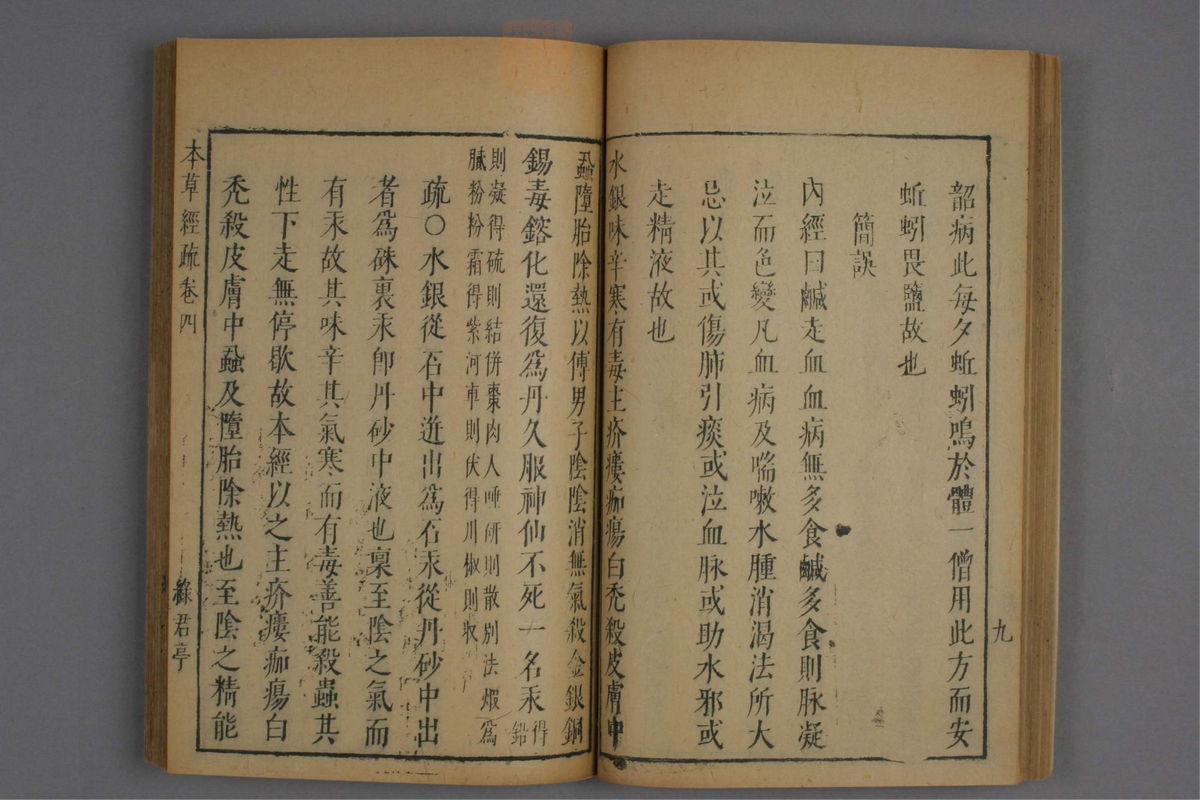 韶病此每夕蚯蚓鳴於體一僧用此方而安
蚯蚓畏鹽故也
簡誤
內經曰鹹走血血病無多食鹹多食則脉凝
泣而色變凡血病及喘嗽水腫消渴法所大
忌以其或傷肺引痰或泣血脉或助水邪或
走精液故也
九
水銀味辛寒有毒主疥瘻痂瘍白禿殺皮膚中
蝨墮胎除熱以傅男子陰陰消無氣殺金銀銅
錫毒鎔化還復爲丹久服神仙不死一名汞得鉛
則凝得硫則結併棗肉人唾研則散别法煆爲
膩粉粉霜得紫河車則伏得川椒則収
疏〇水銀從石中迸出爲石汞從丹砂中出
者爲硃裏汞卽丹砂中液也稟至陰之氣而
有汞故其味辛其氣寒而有毒善能殺蟲其
性下走無停歇故本經以之主疥瘻痂瘍白
禿殺皮膚中蝨及墮胎除熱也至陰之精能
本草經疏卷四
綠君亭